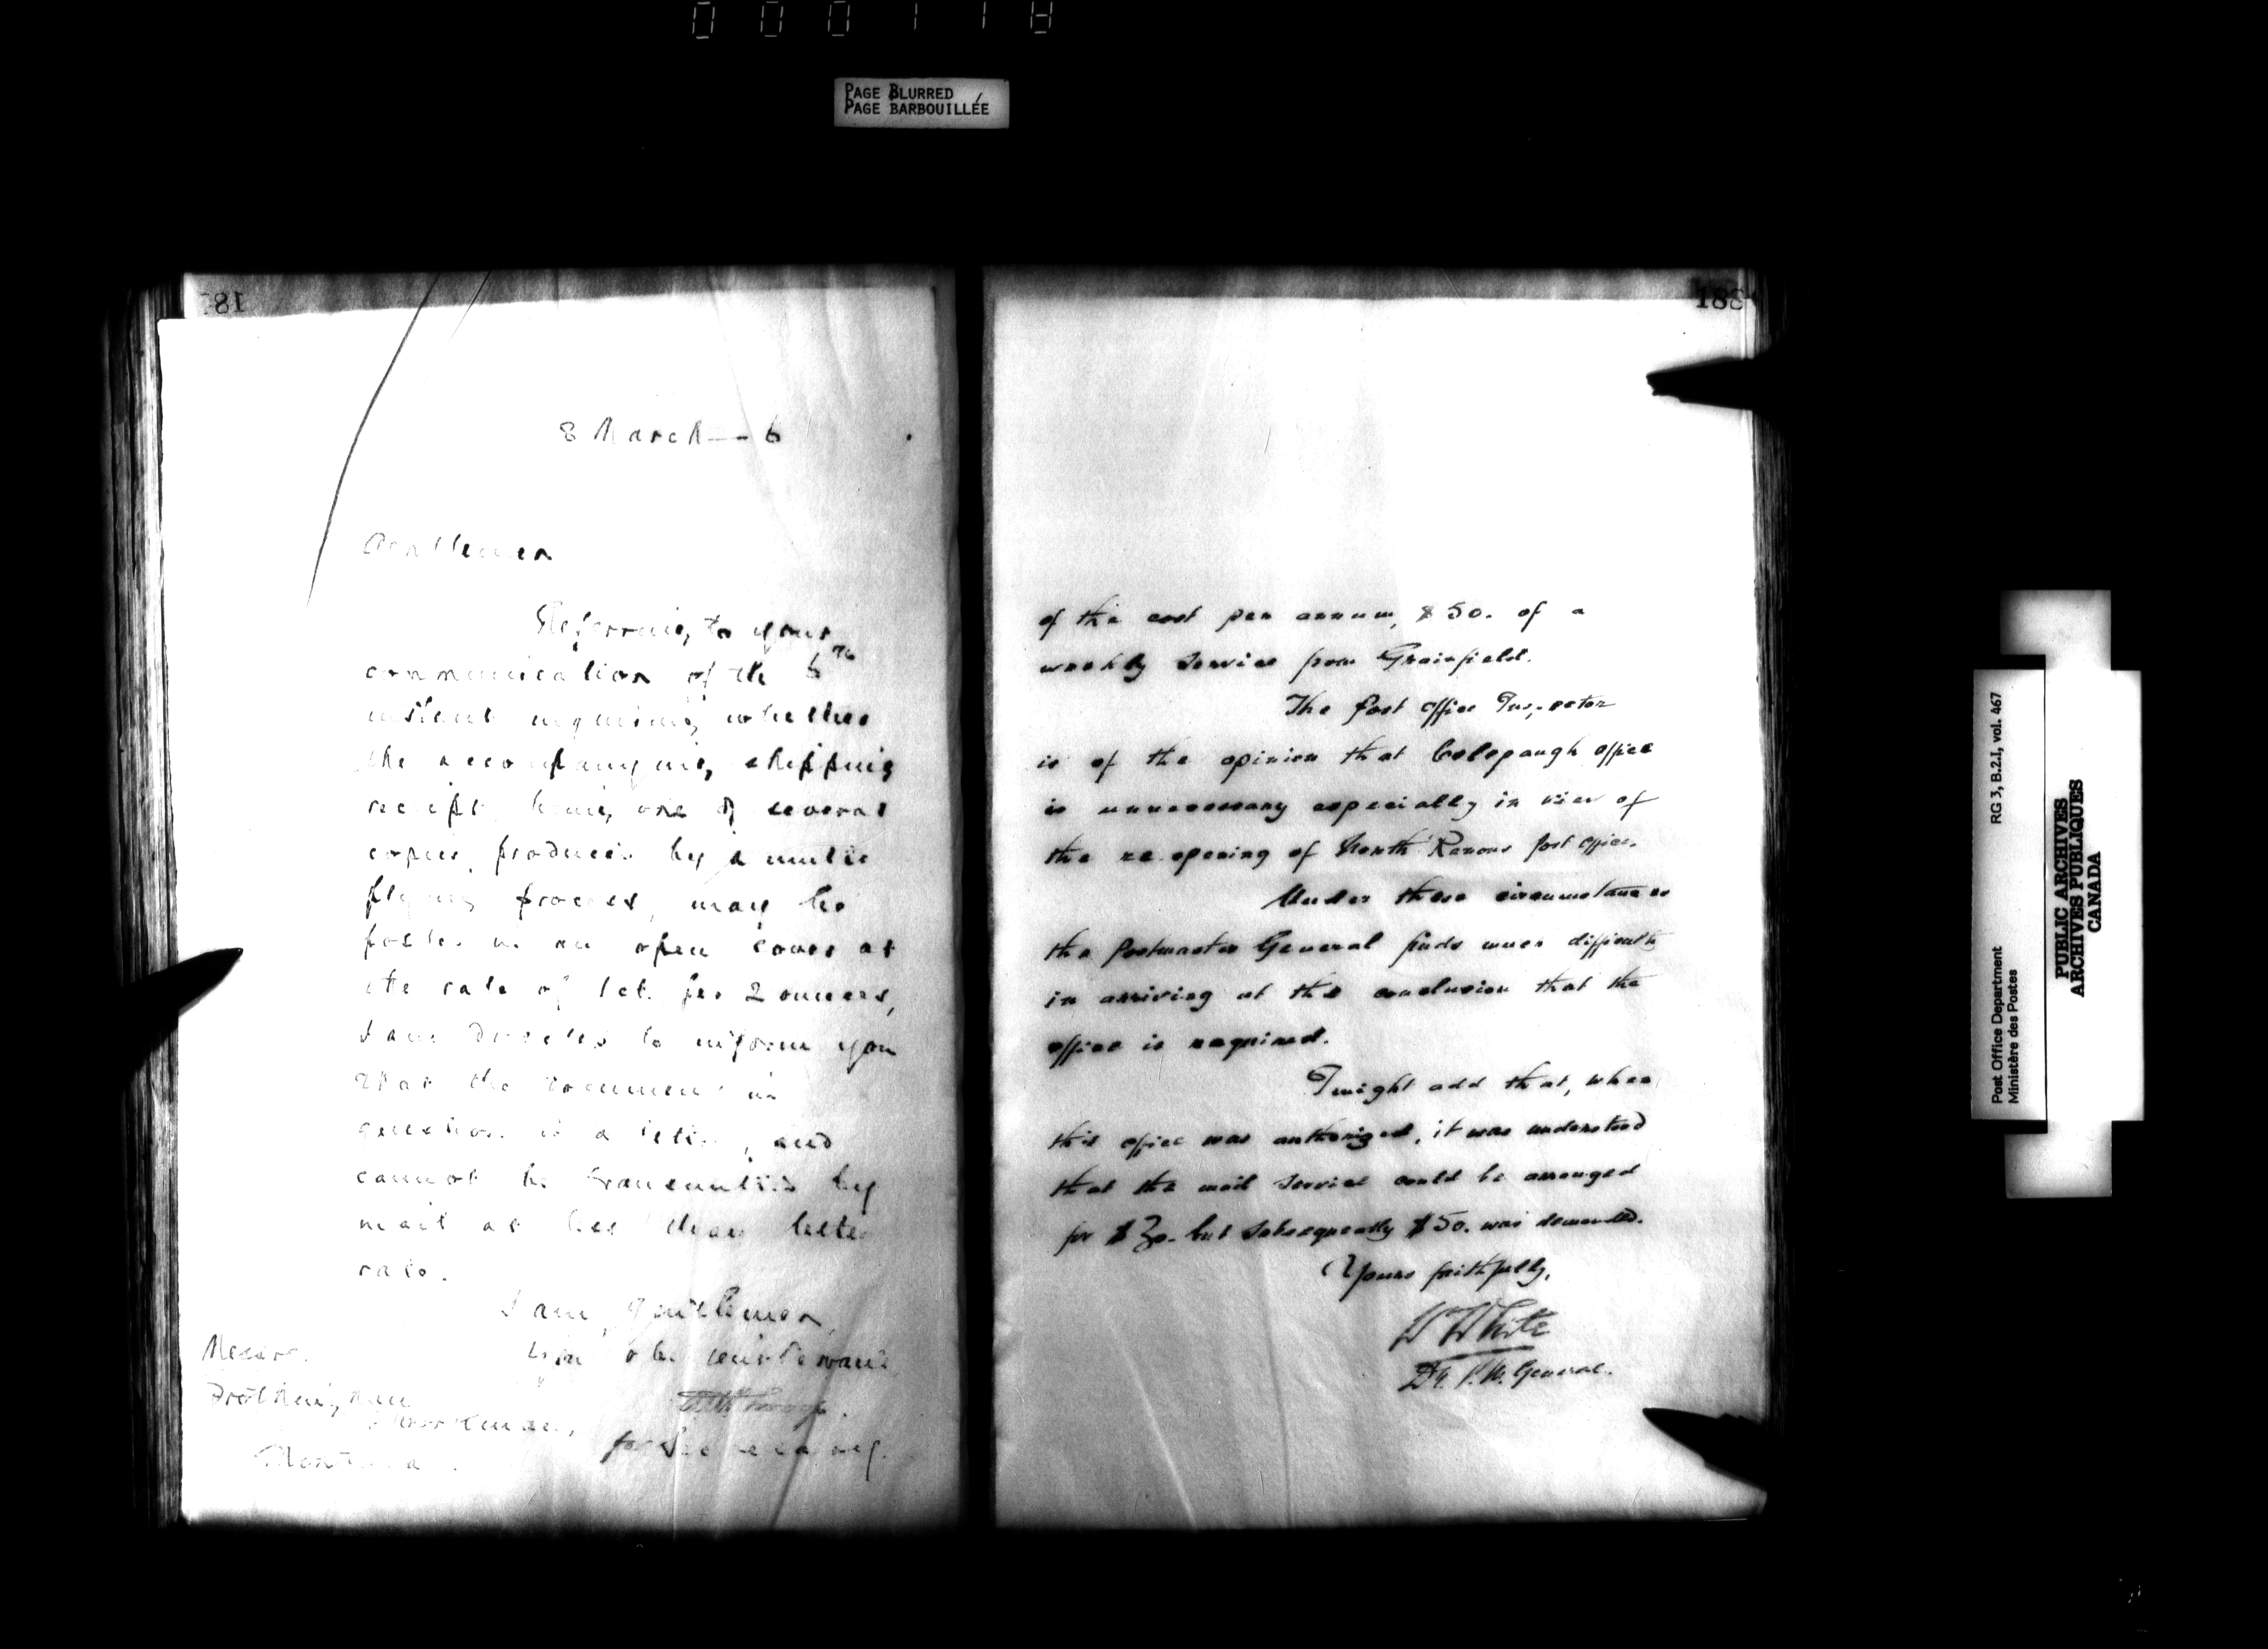 000118
PAGE BLURRED
PAGE BARBOUILLÉE
8 March — 6
Gentlemen
Referring to your
communication of the 6th
instant inquiring whether
the accompanying shipping
receipt being one of several
copies produced by a multi
plying process, may be
posted in an open cover at
the rate of 1ct. per 2 ounces,
I am directed to inform you
that the document in
question is a letter, and
cannot be transmitted by
mail at less than letter
rate.
I am, Gentlemen,
Your obedient servant
for Secretary.
Messrs.
Workman,
Montreal.
183
of the cost per annum, $50. of a
weekly service from Grainfield.
The Post Office Inspector
is of the opinion that office
is unnecessary especially in view of
the re-opening of North Renous post office.
Under these circumstances
the Postmaster General finds much difficulty
in arriving at the conclusion that the
office is required.
I might add that, when
this office was authorized, it was understood
that the mail service could be arranged
for $30. but subsequently $50. was demanded.
Yours faithfully,
W White
Dy. P. M. General.
Post Office Department
Ministère des Postes
RG 3, B.2.I, vol. 467
PUBLIC ARCHIVES
ARCHIVES PUBLIQUES
CANADA